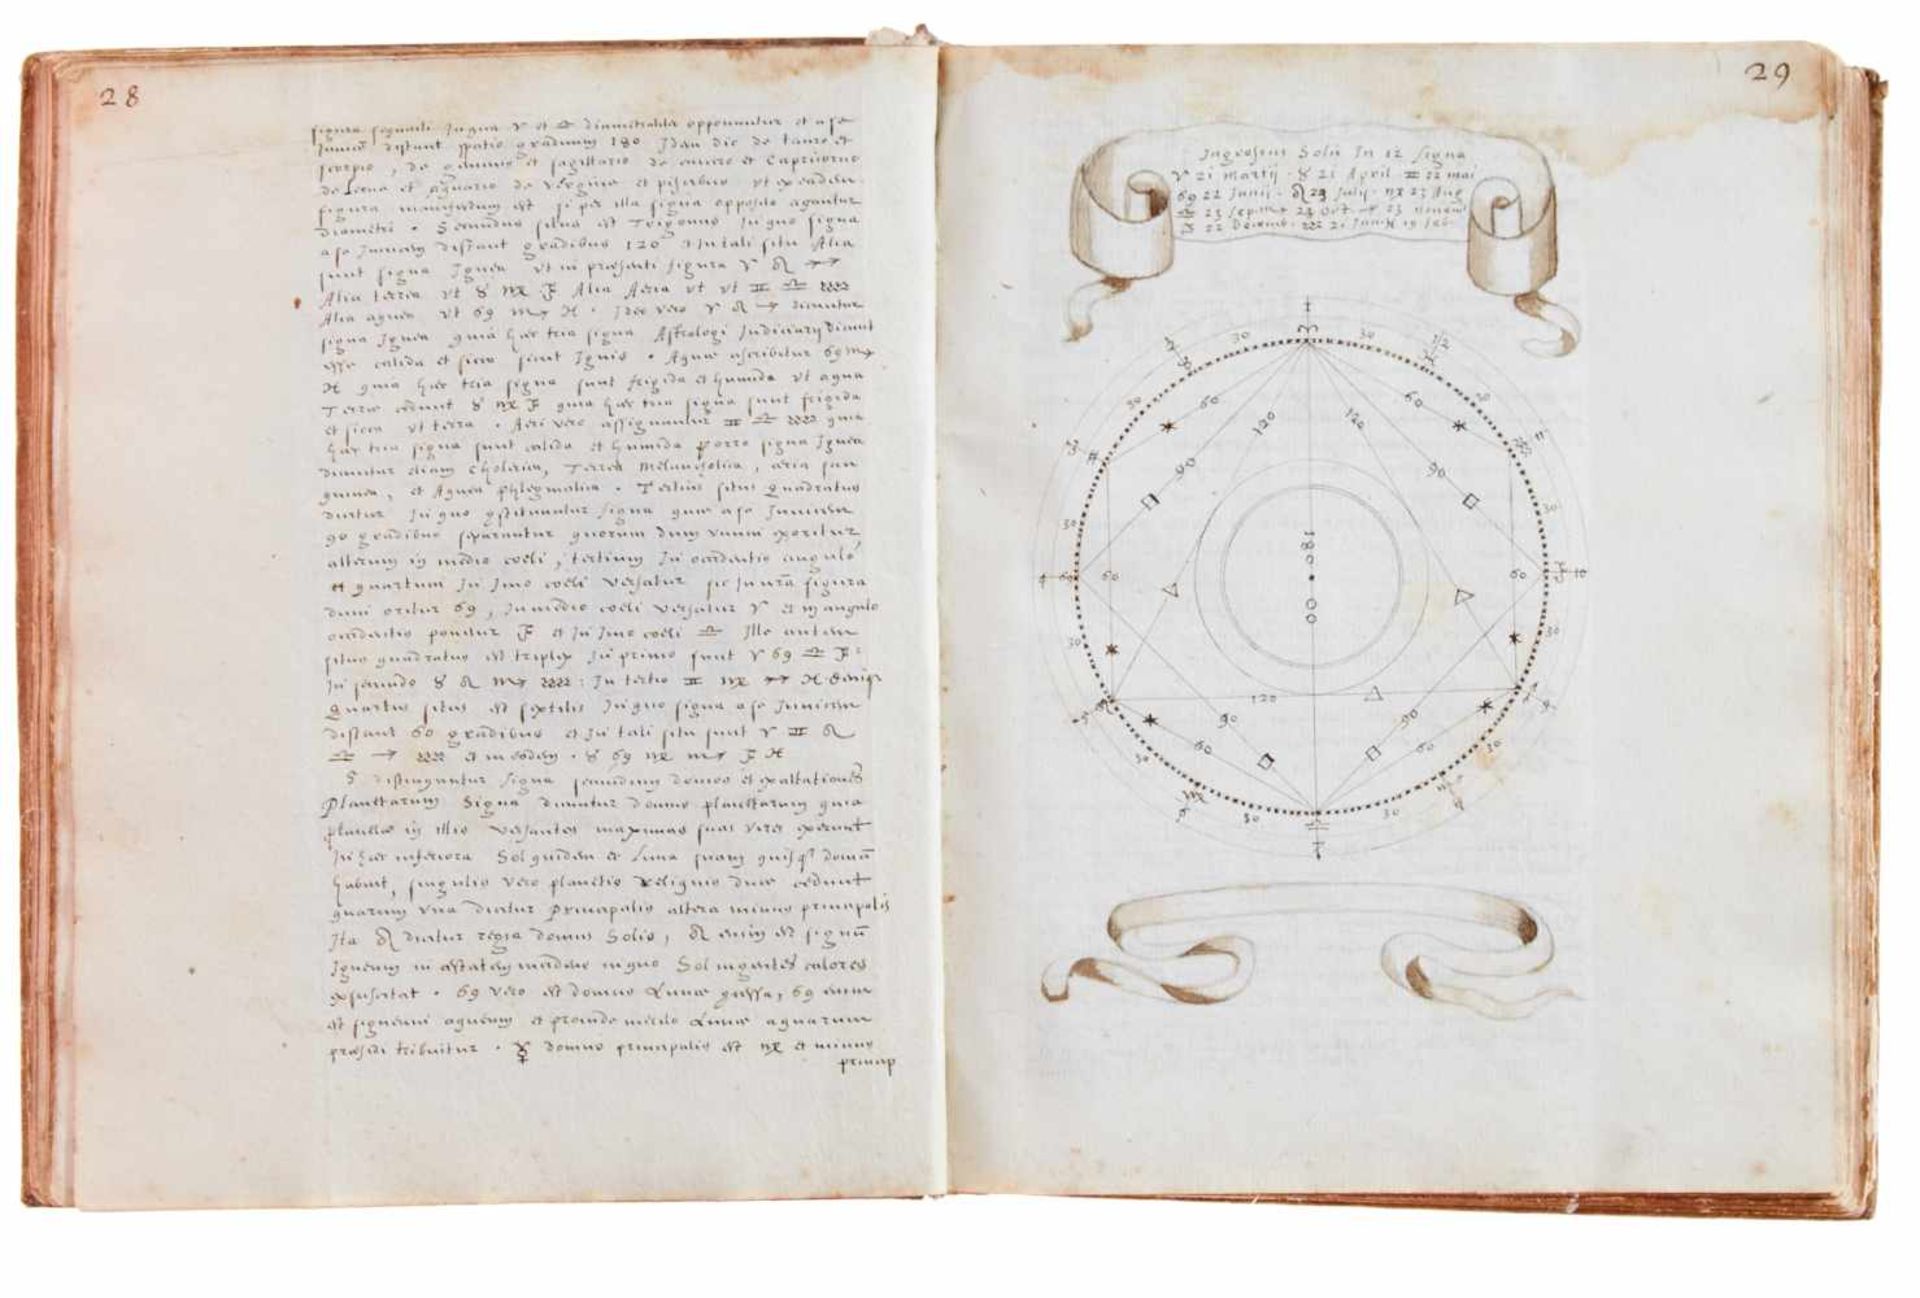 28
figura sequenti in qua ♈ et ♎ diametraliter opponuntur et a se
Invicem distant spatio graduum 180 Idem dic de tauro et
scorpio, de geminis et sagittario de cancro et Capricorno
de Leone et aquario de virgine et piscibus ut ex eadem
figura manifestum est si per illa signa opposita agantur
diametri. Secundus situs est Trigonus In quo signa
a se Invicem distant gradibus 120 In tali situ Alia
sunt signa Ignea ut in praesenti figura ♈ ♌ ♐
Alia terrea ut ♉ ♍ ♑ Alia Aeria ut ut ♊ ♎ ♒
Alia aquea ut ♋ ♏ ♓. Ideo vero ♈ ♌ ♐ dicuntur
signa Ignea quia haec tria signa Astrologi Judiciarij dicunt
esse calida et sicca sicut Ignis. Aquae ascribitur ♋ ♏
♓ quia haec tria signa sunt frigida et humida ut aqua
Terrae cedunt ♉ ♍ ♑ quia haec tria signa sunt frigida
et sicca ut terra. Aeri vero assignantur ♊ ♎ ♒ quia
haec tria signa sunt calida et humida porro signa Ignea
dicuntur etiam cholerica, Terrea Melancholica, aeria san
guinea, et Aquea phlegmatica. Tertius situs Quadratus
dicitur In quo constituuntur signa quae a se Invicem
90 gradibus separantur quorum dum unum exoritur
alterum in medio coeli, tertium In occidentis angulo
et quartum In Imo coeli versatur sic In nostra figura
dum oritur ♋, In medio coeli versatur ♈ et in angulo
occidentis ponitur ♑ et In Imo coeli ♎ Ille autem
situs quadratus est triplex In primo sunt ♈ ♋ ♎ ♑:
In secundo ♉ ♌ ♏ ♒: In tertio ♊ ♍ ♐ ♓ deniqz
Quartus situs est sextilis In quo signa a se Invicem
distant 60 gradibus et In tali situ sunt ♈ ♊ ♌
♎ ♐ ♒ et in eodem. ♉ ♋ ♍ ♏ ♑ ♓
5 distinguntur signa secundum domos et exaltationes
Planetarum Signa dicuntur domus planetarum quia
planetae in illis versantes maximas suas vires exerunt
In haec inferiora Sol quidem et Luna suam quisqz domum
habuit, singulis vero planetis reliquis duae cedunt
quarum una dicitur Principalis altera minus principalis
Ita ♌ dicitur regia domus Solis, ♌ enim est signum
Igneum in aestatem incidens in quo Sol ingentes calores
exsuscitat. ♋ vero est domus Lunae
est signum aqueum et proinde merito Lunae aquarum
praesidi tribuitur. ☿ domus principalis est ♍ et minus
princip
29
Ingressus Solis In 12 signa
♈ 21 martij. ♉ 21 April ♊ 22 mai
♋ 22 Junij. ♌ 23 Julij. ♍ 23 Aug
♎ 23 Sept ♏ 23 Oct ♐ 23 Novem
♑ 22 Decemb. ♒ 21 Jan ♓ 19 feb
1
♈
30 30
2 ♉ 12 ♓
30 30
60 120 120 60
3 ♊ 11 ♒
90 90
30 30
180
4 ♋ 60 60 ♑ 10
00
30 30
5 ♌ 120 ♐ 9
90 90
60 60
30 30
6 ♍ ♏ 8
30 30
♎
7